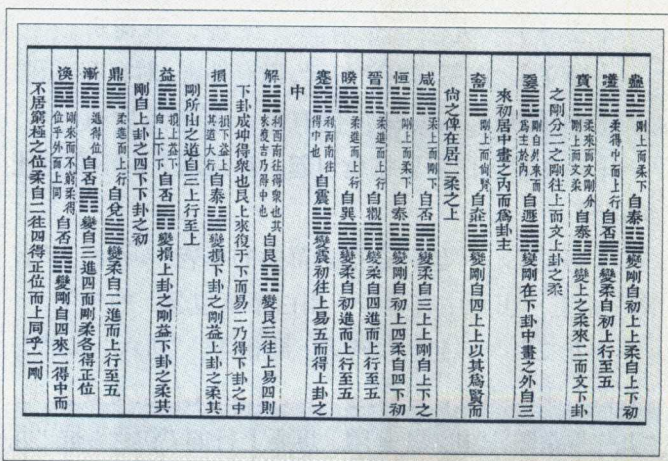 蠱䷑剛上而柔下自泰䷊變剛自初上上柔自上下初
噬䷔柔得中而上行自否䷋變柔自初上行至五
賁䷕柔來而文剛分剛上而文柔自泰䷊變上之柔來二而文下卦
之剛分二之剛往上而文上卦之柔
䷘剛自外來而爲主於內自遯䷠變剛在下卦中畫之外自三
來初居中畫之內而爲卦主
䷙剛上而尙賢自䷡變剛自四上上以其爲賢而
尙之俾在居二柔之上
咸䷞柔上而剛下自否䷋變柔自三上上剛自上下之
恒䷟剛上而柔下自泰䷊變剛自初上四柔自四下初
晉䷢柔進而上行自觀䷓變柔自四進而上行至五
睽䷥柔進而上行自巽䷸變柔自初進而上行至五
蹇䷦利西南往得中也自震䷲變震初往上易五而得上卦之
中
解䷧利西南往得衆也其來復吉乃得中也自艮䷳變艮三往上易四則
下卦成坤得衆也艮上來復于下而易二乃得下卦之中
損䷨損下益上其道大行自泰䷊變損下卦之剛益上卦之柔其
剛所出之道自三上行至上
益䷩損上益下自上下下自否䷋變損上卦之剛益下卦之柔其
剛自上卦之四下下卦之初
鼎䷱柔進而上行自兌䷹變柔自二進而上行至五
漸䷴進得位自否䷋變自三進四而剛柔各得正位
渙䷺剛來而不窮柔得位乎外而上同自否䷋變剛自四來二得中而
不居窮極之位柔自二往四得正位而上同乎二剛